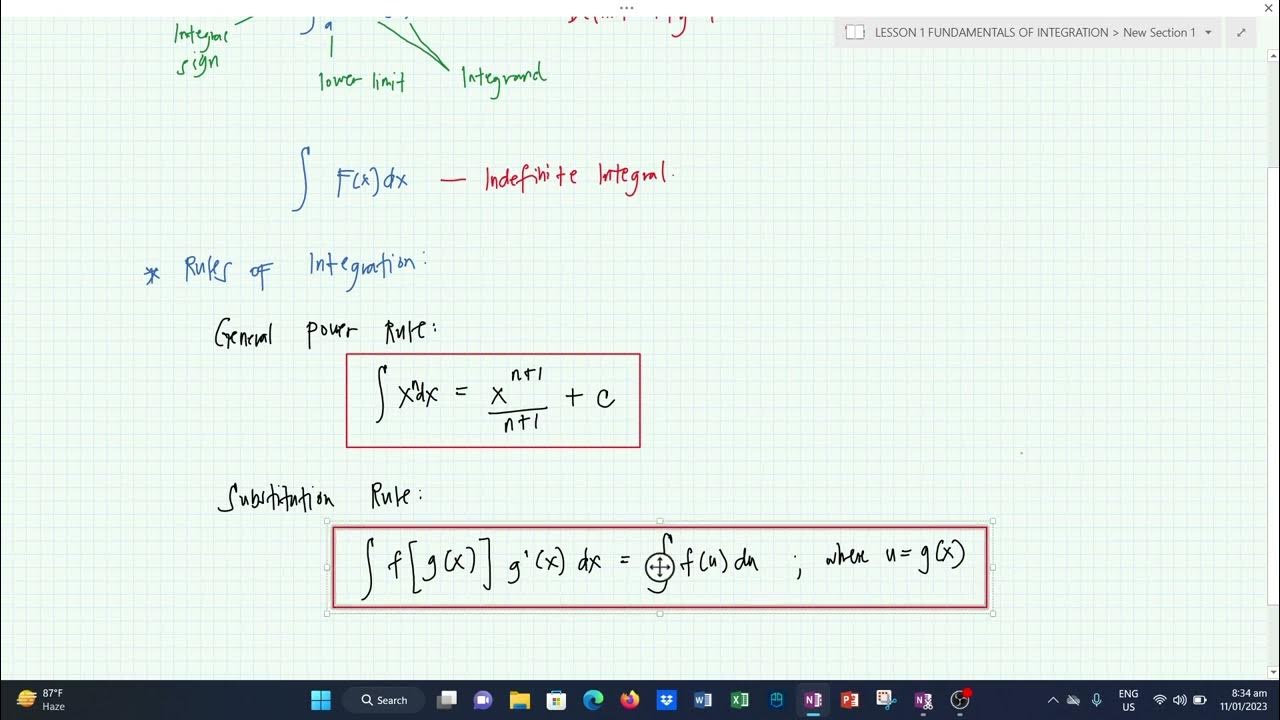 LESSON 1 FUNDAMENTALS OF INTEGRATION > New Section 1
Integral
sign
a
lower limit
Integrand
∫ F(x) dx — Indefinite Integral.
* Rules of Integration:
General Power Rule:
∫ xⁿdx = x^(n+1)/(n+1) + C
Substitution Rule:
∫ f[g(x)] g'(x) dx = ∫ f(u) du ; where u = g(x)
87°F
Haze
Search
ENG
US
8:34 am
11/01/2023